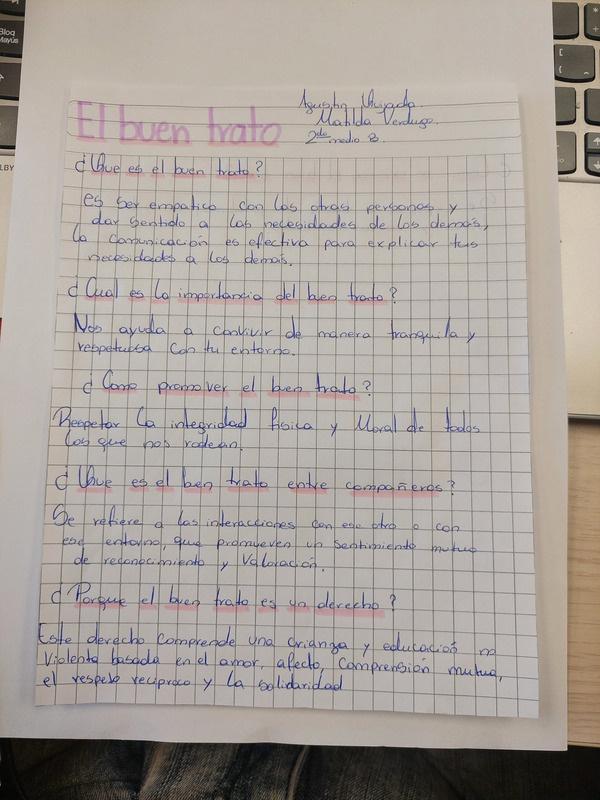 Bloq
Mayús
El buen trato
Agustin
Matilda Verdugo.
2do medio B.
¿Que es el buen trato?
es ser empatico con las otras personas y
dar sentido a las necesidades de los demás,
la comunicación es efectiva para explicar tus
necesidades a los demás.
¿Cual es la importancia del buen trato?
Nos ayuda a convivir de manera tranquila y
respetuosa con tu entorno.
¿Como promover el buen trato?
Respetar la integridad fisica y Moral de todos
los que nos rodean.
¿Que es el buen trato entre compañeros?
Se refiere a las interacciones con ese otro o con
ese entorno, que promueven un sentimiento mutuo
de reconocimiento y valoración.
¿Porque el buen trato es un derecho?
Este derecho comprende una crianza y educación no
violenta basada en el amor, afecto, comprensión mutua,
el respeto reciproco y la solidaridad